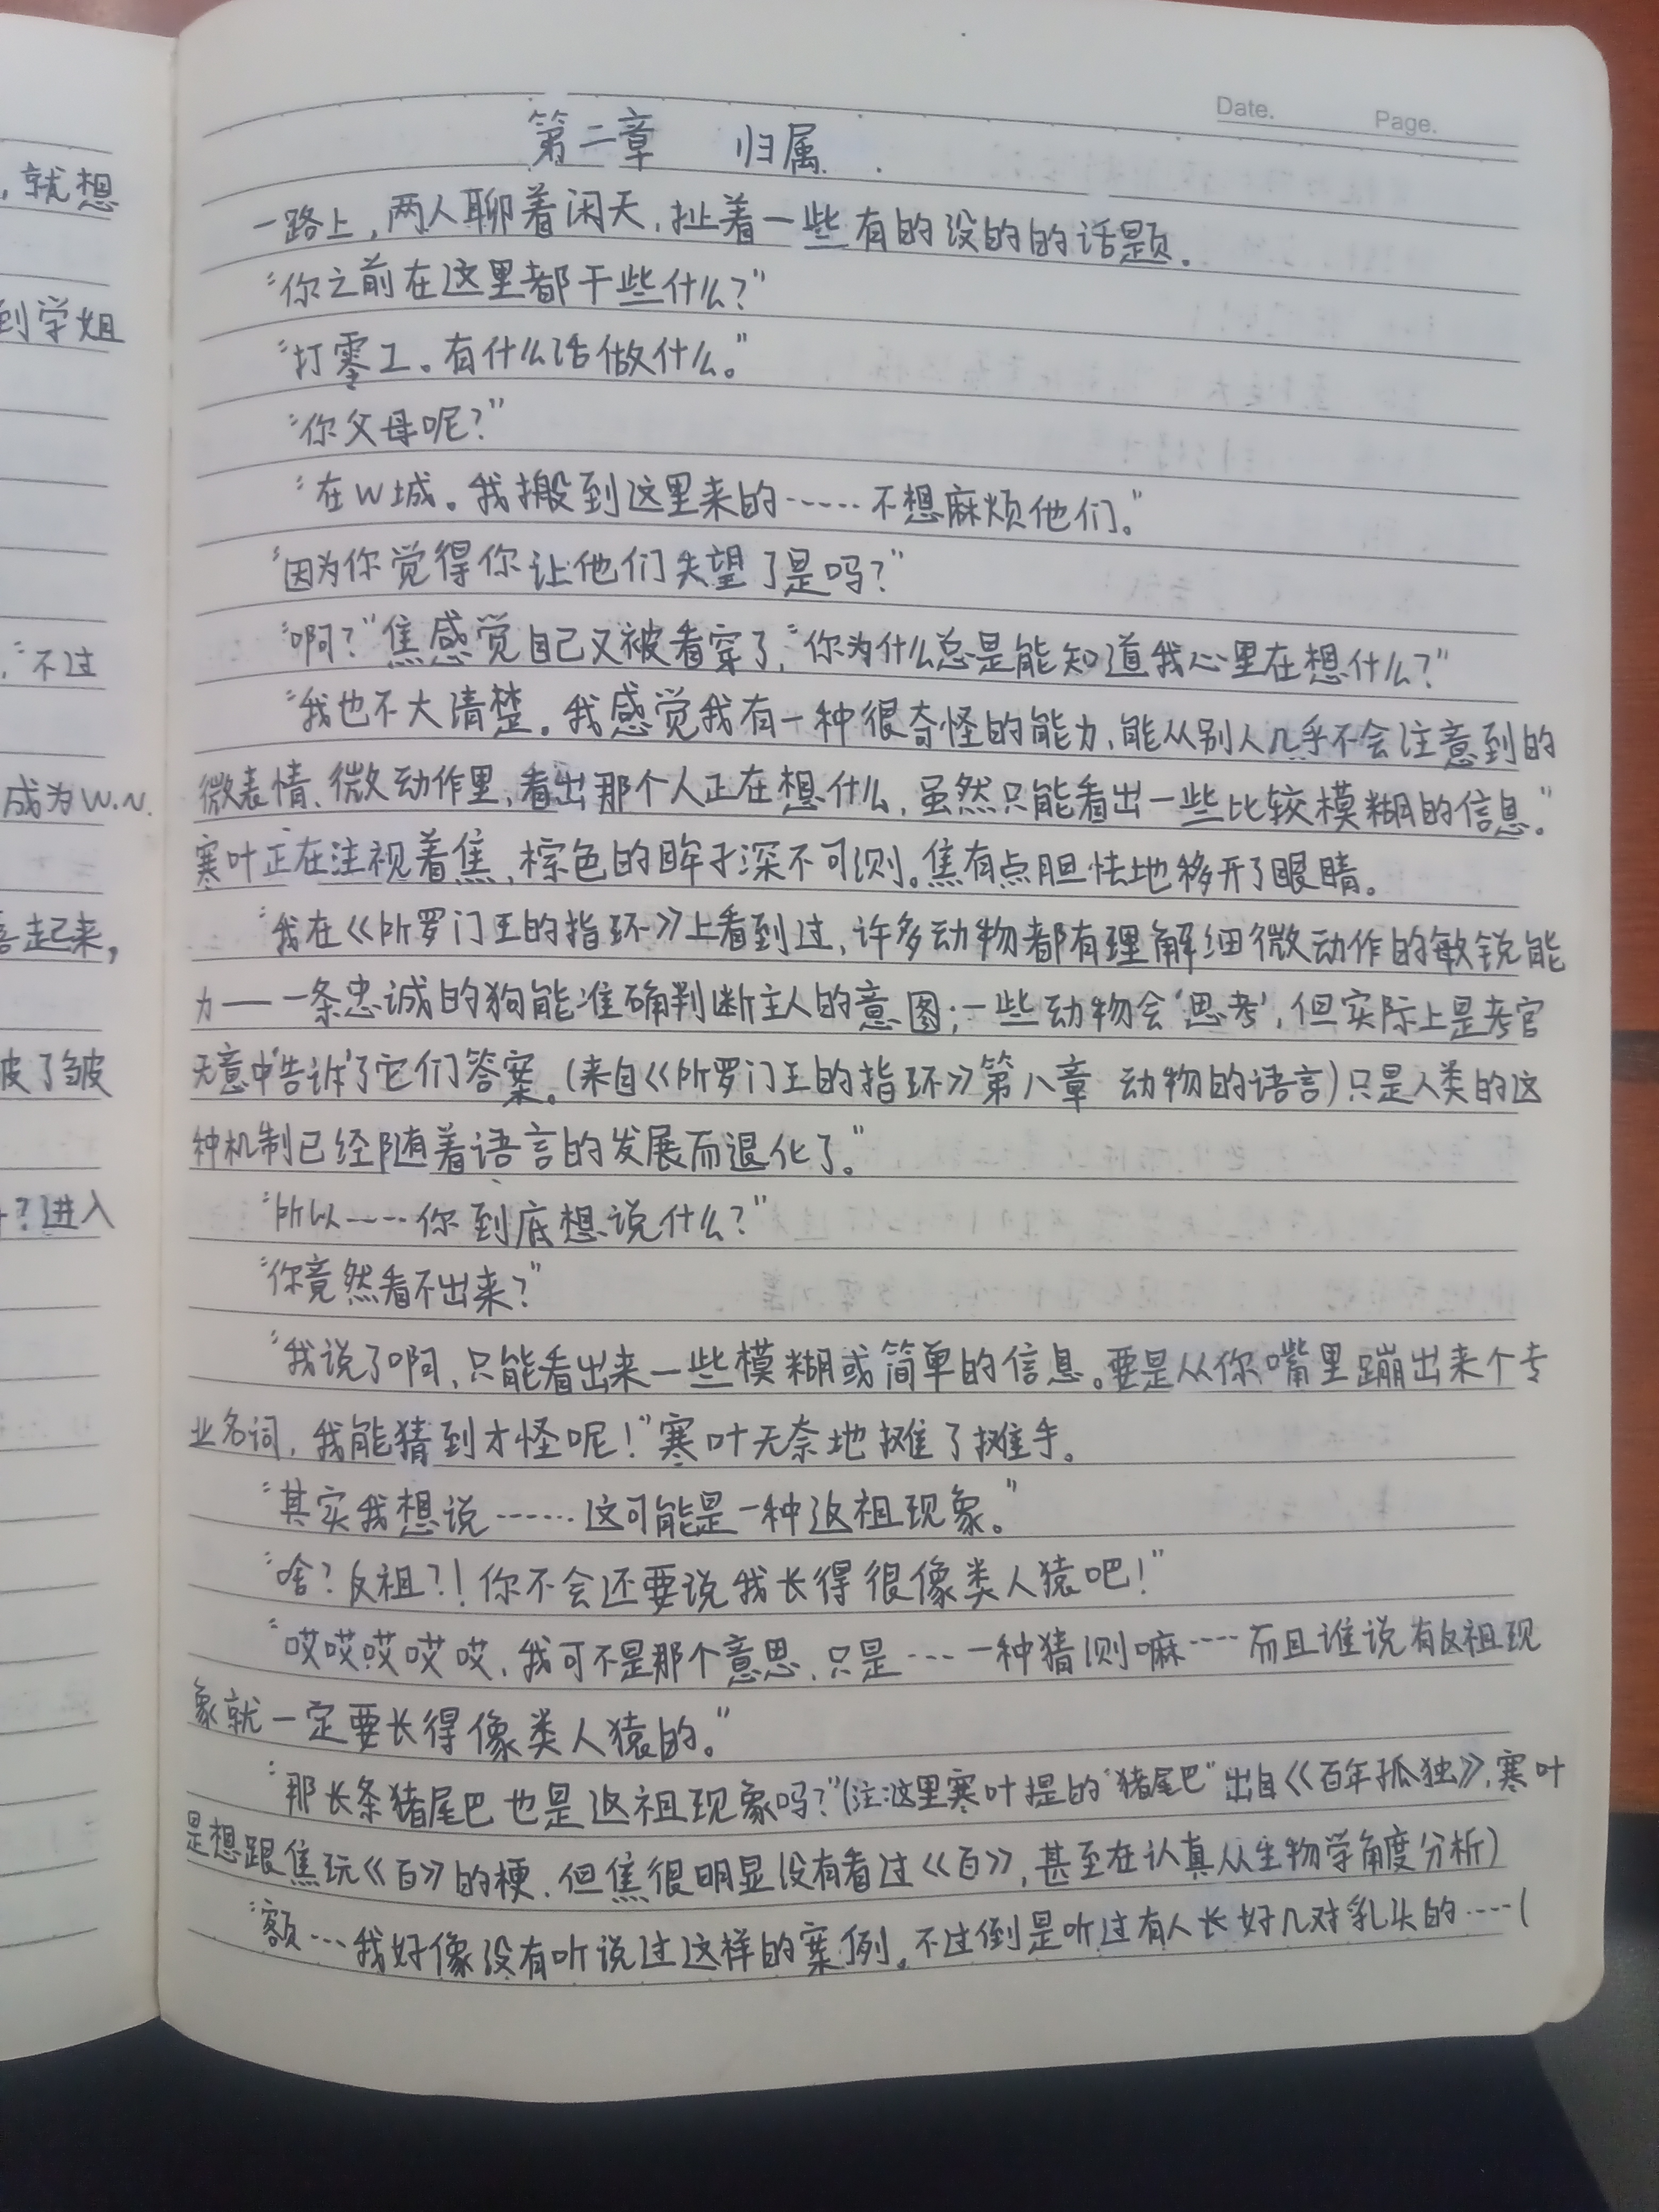 ，就想
到学姐
，“不过
成为W.N.
起来，
皮了皱
？进入
Date.
Page.
第二章 归属
一路上，两人聊着闲天，扯着一些有的没的的话题。
“你之前在这里都干些什么？”
“打零工。有什么活做什么。”
“你父母呢？”
“在W城。我搬到这里来的……不想麻烦他们。”
“因为你觉得你让他们失望了是吗？”
“啊？”焦感觉自己又被看穿了，“你为什么总是能知道我心里在想什么？”
“我也不大清楚。我感觉我有一种很奇怪的能力，能从别人几乎不会注意到的
微表情、微动作里，看出那个人正在想什么，虽然只能看出一些比较模糊的信息。”
寒叶正在注视着焦，棕色的眸子深不可测。焦有点胆怯地移开了眼睛。
“我在《所罗门王的指环》上看到过，许多动物都有理解细微动作的敏锐能
力——一条忠诚的狗能准确判断主人的意图；一些动物会‘思考’，但实际上是考官
无意中‘告诉’了它们答案。（来自《所罗门王的指环》第八章 动物的语言）只是人类的这
种机制已经随着语言的发展而退化了。”
“所以……你到底想说什么？”
“你竟然看不出来？”
“我说了啊，只能看出来一些模糊或简单的信息。要是从你嘴里蹦出来个专
业名词，我能猜到才怪呢！”寒叶无奈地摊了摊手。
“其实我想说……这可能是一种返祖现象。”
“啥？反祖？！你不会还要说我长得很像类人猿吧！”
“哎哎哎哎哎，我可不是那个意思，只是…一种猜测嘛……而且谁说有反祖现
象就一定要长得像类人猿的。”
“那长条猪尾巴也是返祖现象吗？”（注：这里寒叶提的“猪尾巴”出自《百年孤独》，寒叶
是想跟焦玩《百》的梗，但焦很明显没有看过《百》，甚至在认真从生物学角度分析）
“额…我好像没有听说过这样的案例。不过倒是听过有人长好几对乳头的……（